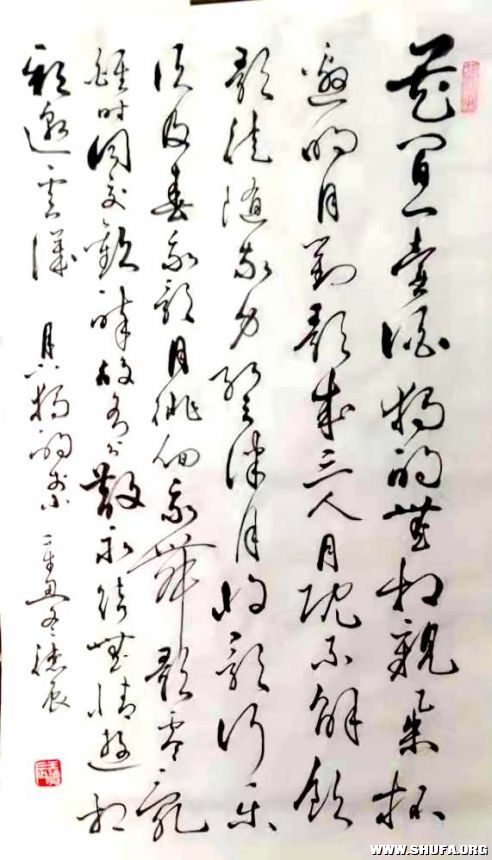 花間一壺酒獨酌無相親舉杯
邀明月對影成三人月既不解飲
影徒隨我身暫伴月將影行樂
須及春我歌月徘徊我舞影零亂
醒时同交歡醉後各分散永結無情遊相
期邈雲漢 月下獨酌 辛丑冬德辰
WWW.SHUFA.ORG